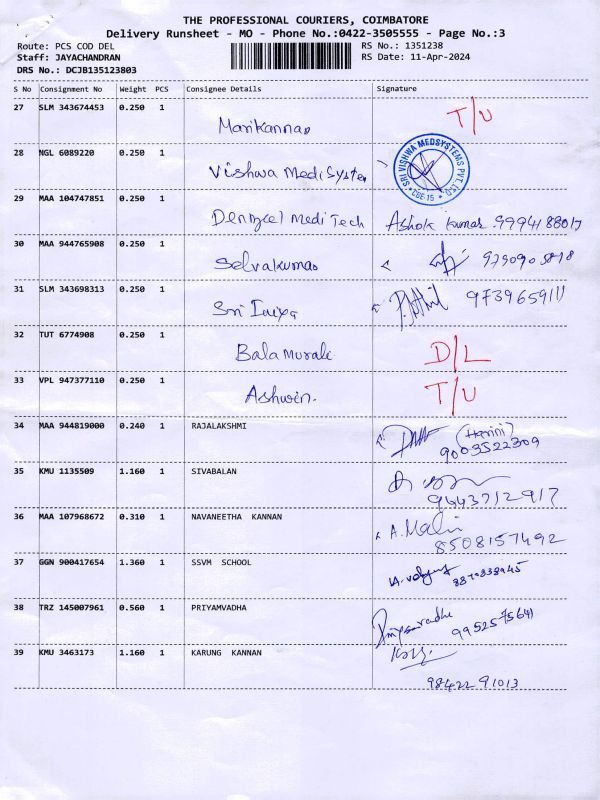 THE PROFESSIONAL COURIERS, COIMBATORE
Delivery Runsheet - MO - Phone No.:0422-3505555 - Page No.:3
Route: PCS COD DEL RS No.: 1351238
Staff: JAYACHANDRAN RS Date: 11-Apr-2024
DRS No.: DCJB135123803
S No Consignment No Weight PCS Consignee Details Signature
27 SLM 343674453 0.250 1 Manikannao T/U
28 NGL 6089220 0.250 1 Vishwa MediSystem SRI VISHWA MEDSYSTEMS PVT. LTD CBE-15
29 MAA 104747851 0.250 1 Denzcel Medi Tech Ashok kumar. 9994188017
30 MAA 944765908 0.250 1 Selvakumao
31 SLM 343698313 0.250 1 Sri 9739659111
32 TUT 6774908 0.250 1 Bala Murali D/L
33 VPL 947377110 0.250 1 Ashwin. T/U
34 MAA 944819000 0.240 1 RAJALAKSHMI (Harini) 9003522309
35 KMU 1135509 1.160 1 SIVABALAN 9443712917
36 MAA 107968672 0.310 1 NAVANEETHA KANNAN A. Malli 8508157492
37 GGN 900417654 1.360 1 SSVM SCHOOL
38 TRZ 145007961 0.560 1 PRIYAMVADHA 9952575641
39 KMU 3463173 1.160 1 KARUNG KANNAN 98422 91013